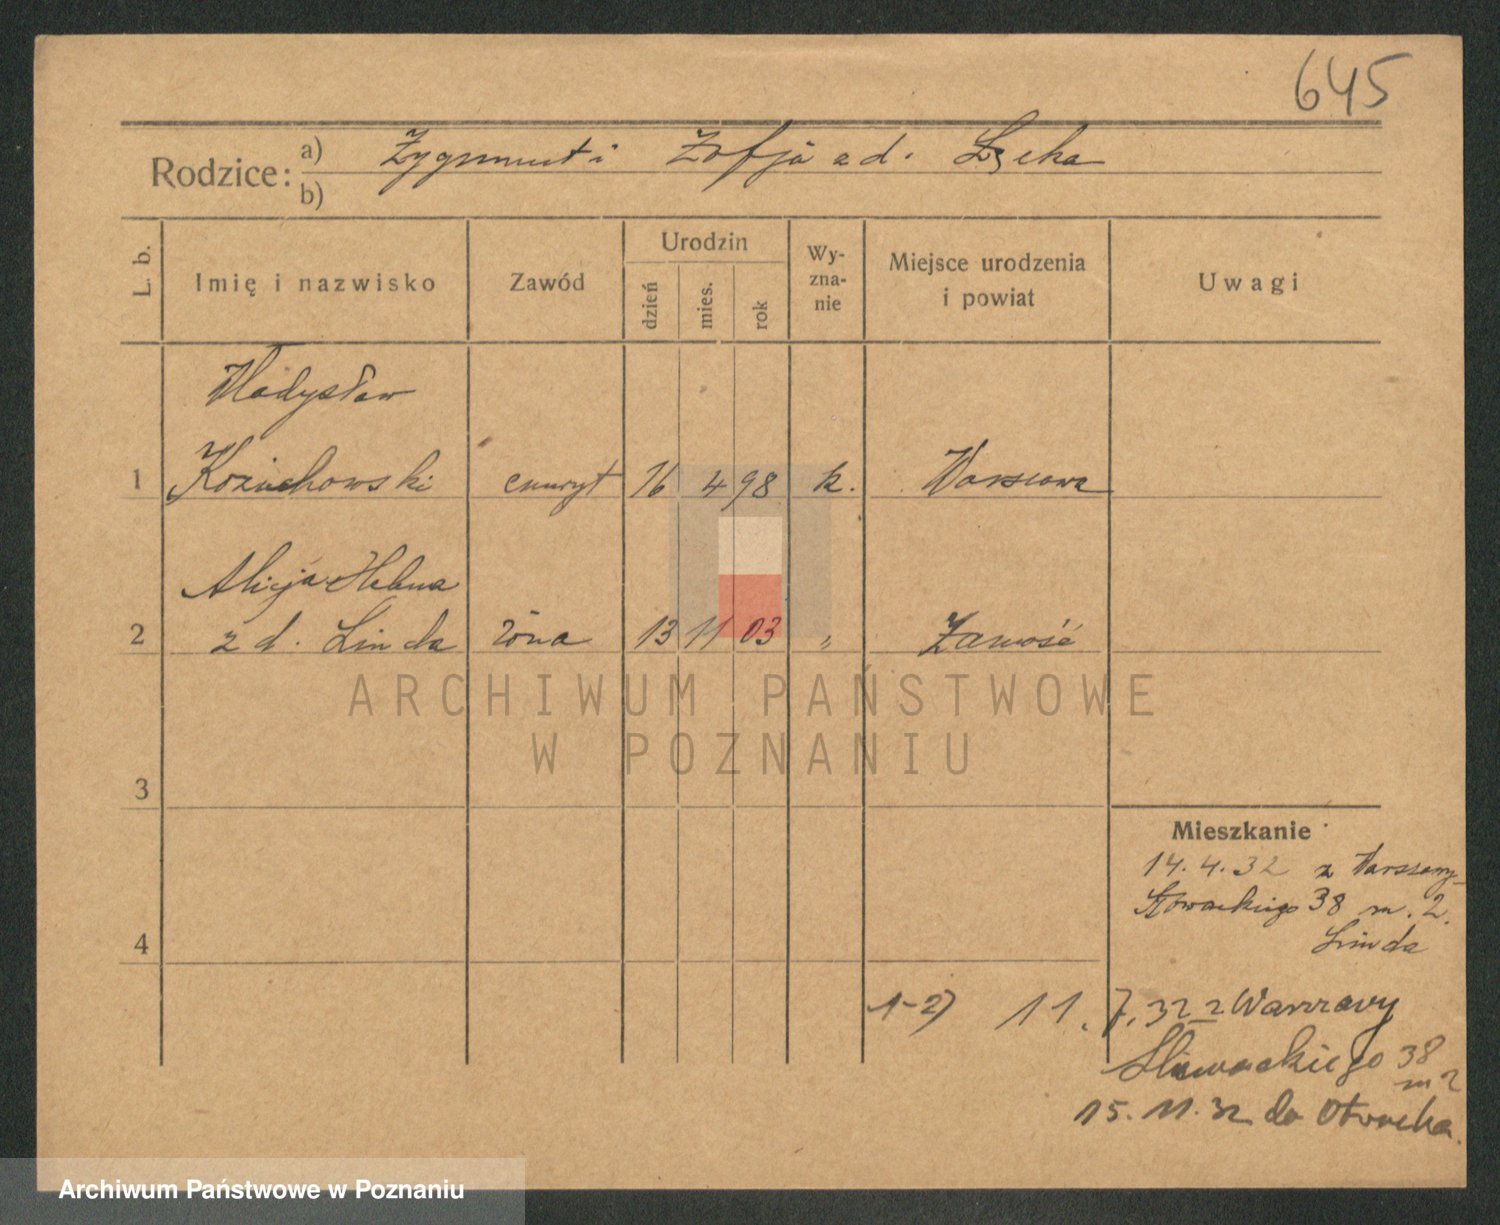 645
Rodzice: a) Zygmunt i Zofja z d. Łęcka
b)
L. b.
Imię i nazwisko
Zawód
Urodzin
dzień
mies.
rok
Wy-
zna-
nie
Miejsce urodzenia
i powiat
Uwagi
Władysław
1 Kożuchowski emeryt 16 4 98 k. Warszawa
Alicja Helena
2 z d. Linda żona 13 11 03 „ Zamość
3
4
Mieszkanie
14. 4. 32 z Warszawy
Słowackiego 38 m. 2.
Linda
1-2) 11. 7. 32 z Warszawy
Słowackiego 38
m 2
15. 11. 32 do Otwocka.
ARCHIWUM PAŃSTWOWE
W POZNANIU
Archiwum Państwowe w Poznaniu